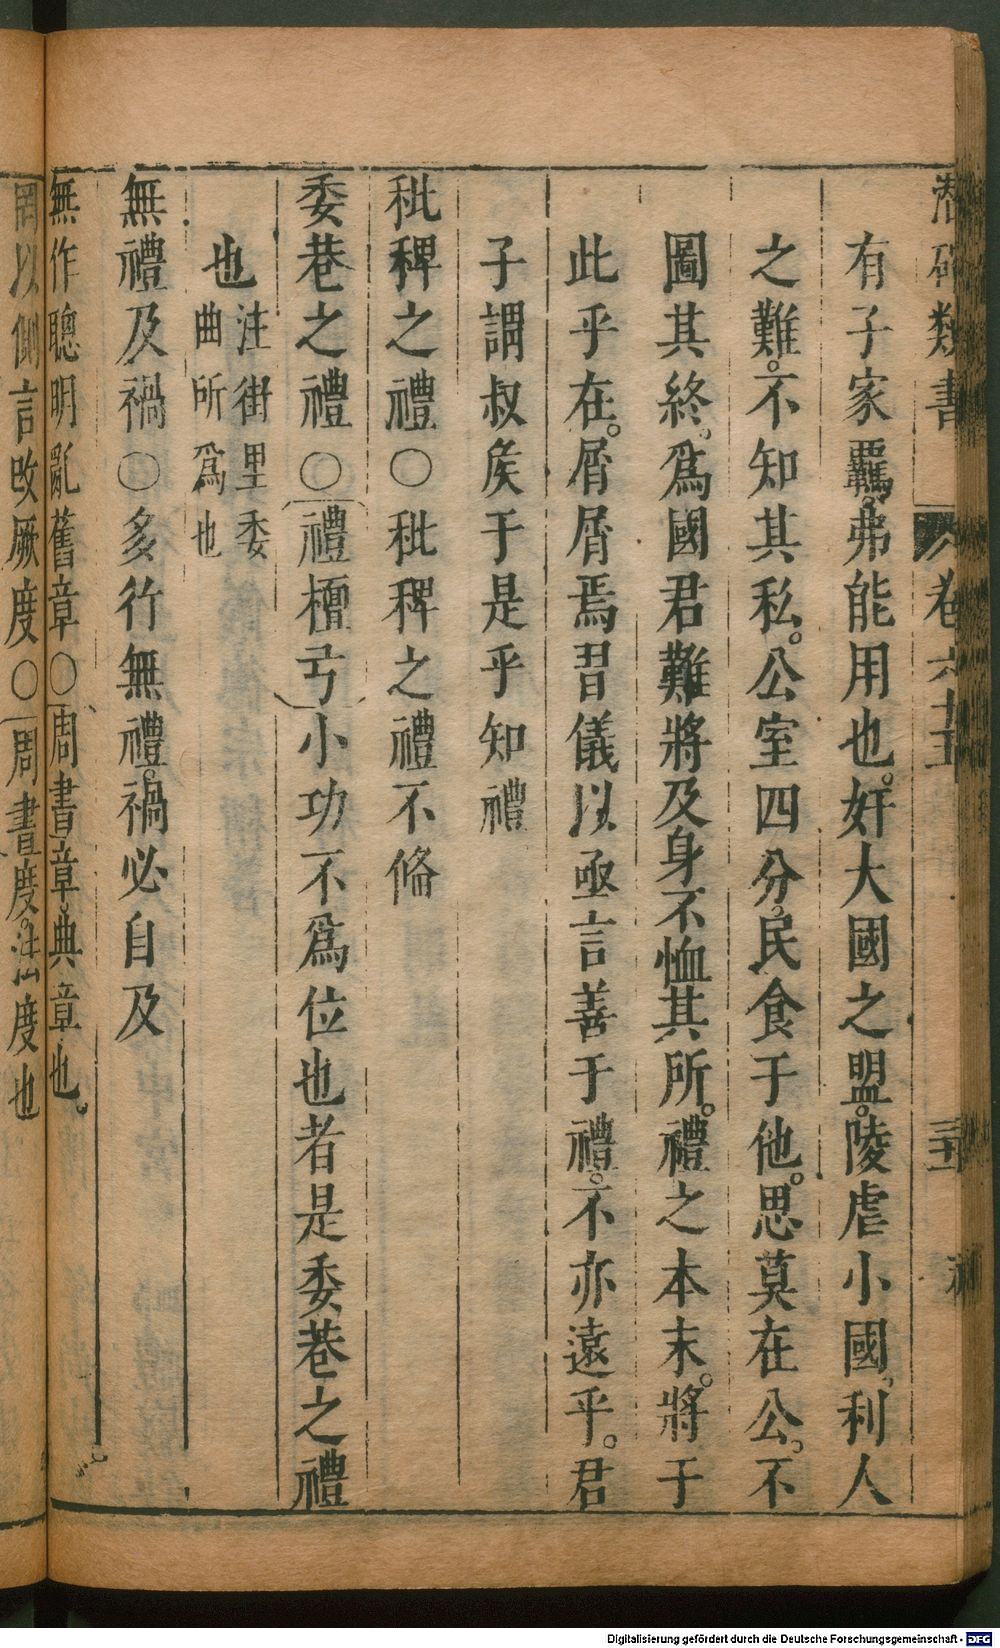 潛確類書 卷六十五 二十二
有子家羈。弗能用也。奸大國之盟。陵虐小國。利人
之難。不知其私。公室四分。民食于他。思莫在公。不
圖其終。爲國君難將及身不恤其所。禮之本末。將于
此乎在。屑屑焉習儀以亟言善于禮。不亦遠乎。君
子謂叔矦于是乎知禮
秕稗之禮〇秕稗之禮不脩
委巷之禮〇禮檀弓小功不爲位也者是委巷之禮
也 注街里委曲所爲也
無禮及禍〇多行無禮。禍必自及
無作聰明亂舊章〇周書章。典章也。
罔以側言改厥度〇周書度。法度也
Digitalisierung gefördert durch die Deutsche Forschungsgemeinschaft - DFG